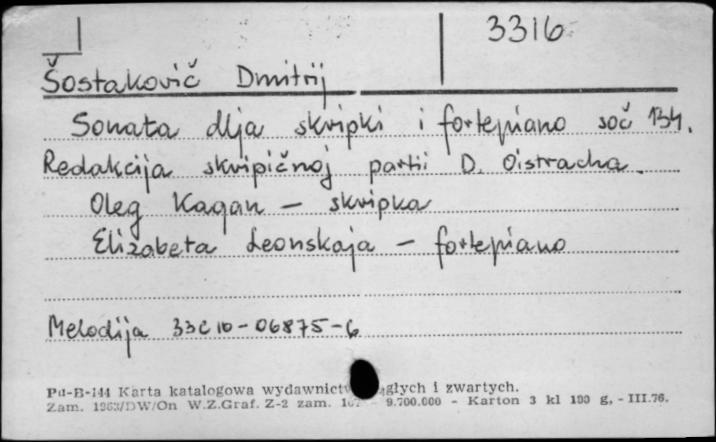 3316
Šostakovič Dmitrij
Sonata dlja skripki i fortepiano soč 134.
Redakcija skripičnoj partii D. Oistracha.
Oleg Kagan – skripka
Elizabeta Leonskaja – fortepiano
Melodija 33C10-06875-6
Pu-B-144 Karta katalogowa wydawnictw ągłych i zwartych.
Zam. 1963/DW/On W.Z.Graf. Z-2 zam. - 9.700.000 - Karton 3 kl 190 g, - III.76.